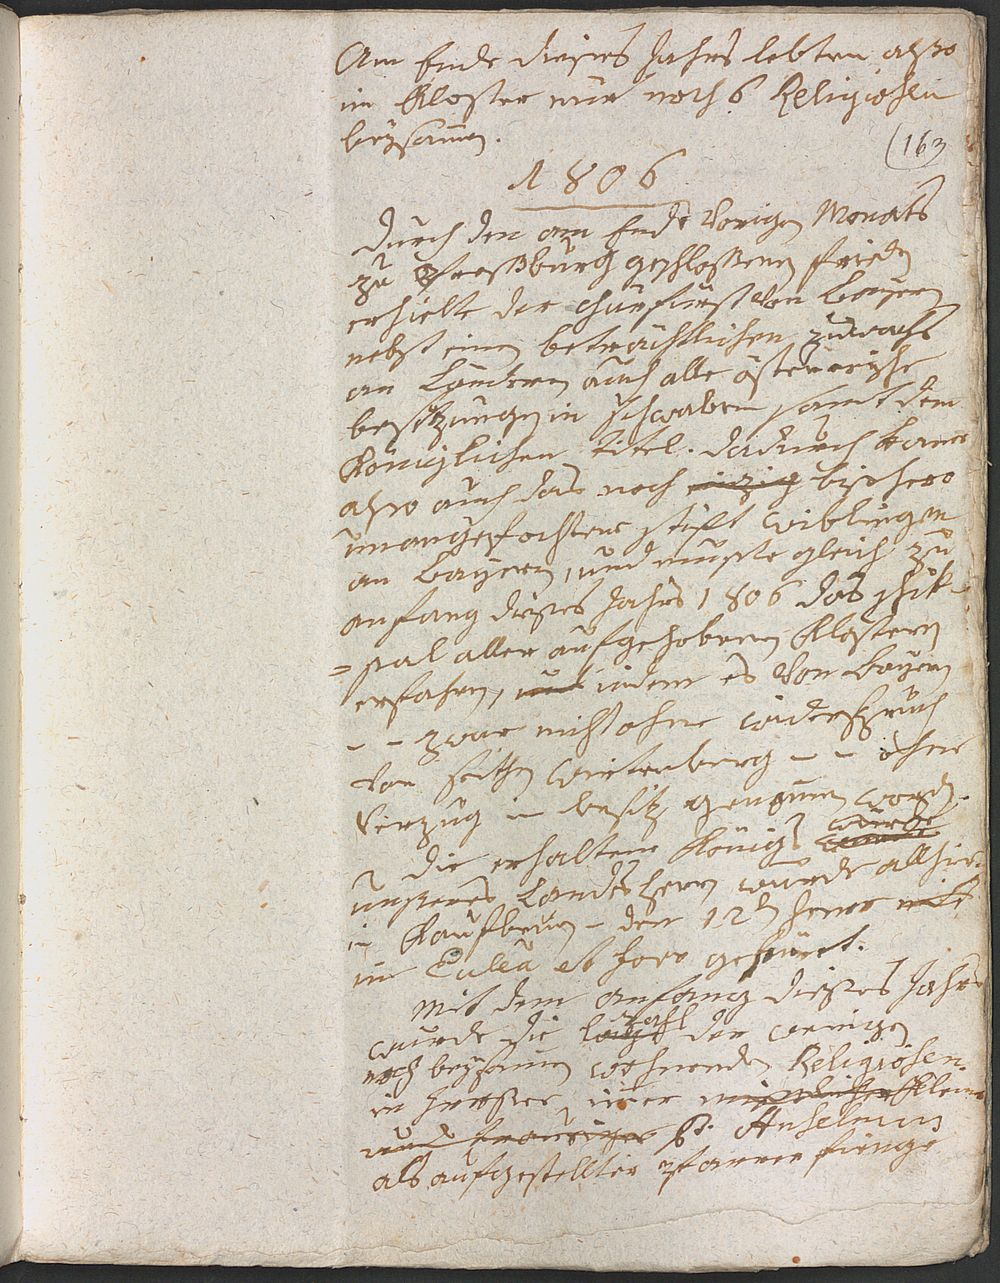 Am Ende dieses Jahrs lebten also
im Kloster nur noch 6 Religiosen
beysamen.
(163
1806
Durch den am Ende vorigen Monats
zu Presßburg geschloßenen frieden
erhielte der Churfürst von Bayern
nebst einem beträchtlichen zuwachs
an Ländern auch alle österreichsche
besitzungen in Schwaben samt dem
Königlichen titel. Dadurch kame
also auch das noch einzig bishero
unangefochtene stift Wiblingen
an Bayern, und mußte gleich zu
anfang dieses Jahrs 1806 das schik-
=sal aller aufgehobenen Klöstern
erfahren, und indem es von Bayern
-- zwar nicht ohne widerspruch
von seiten Wirtenberg -- ohne
Verzug in besitz genomen worden.
Die erhaltene Königs würde
unseres Landesherrn wurde allhier
in Kaufbeurn den 12ten Jener mit
im Eulea et foro gefeuert.
Mit dem anfang dieses Jahrs
wurde die zahl der wenigen
noch beysamen wohnenden Religiosen
in hiesiger kleiner
und trauriger P. Anselmus
als aufgestellter pfarrer fienge